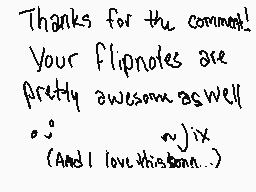 Thanks for the comment!
Your flipnotes are
pretty awesome as well
~Jix
(And I love this song...)